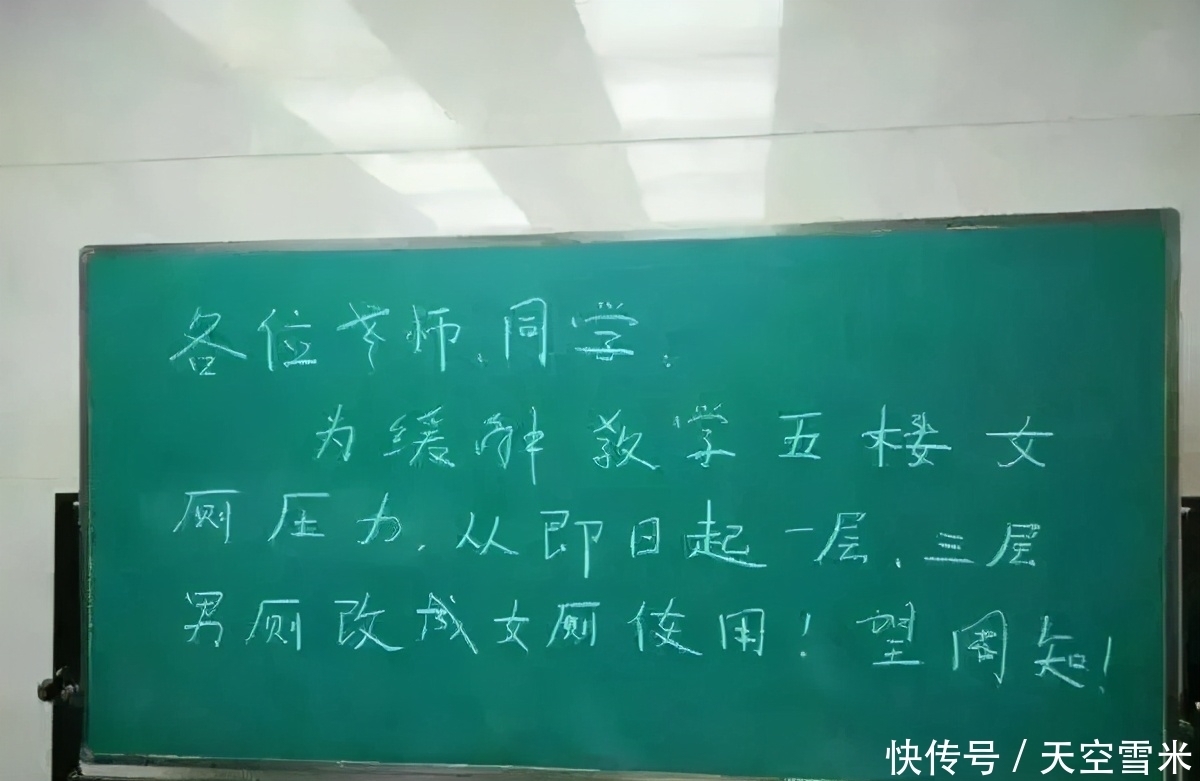 各位老师、同学.
为缓解教学五楼女
厕压力,从即日起一层、三层
男厕改成女厕使用!望周知!
快传号 / 天空雪米